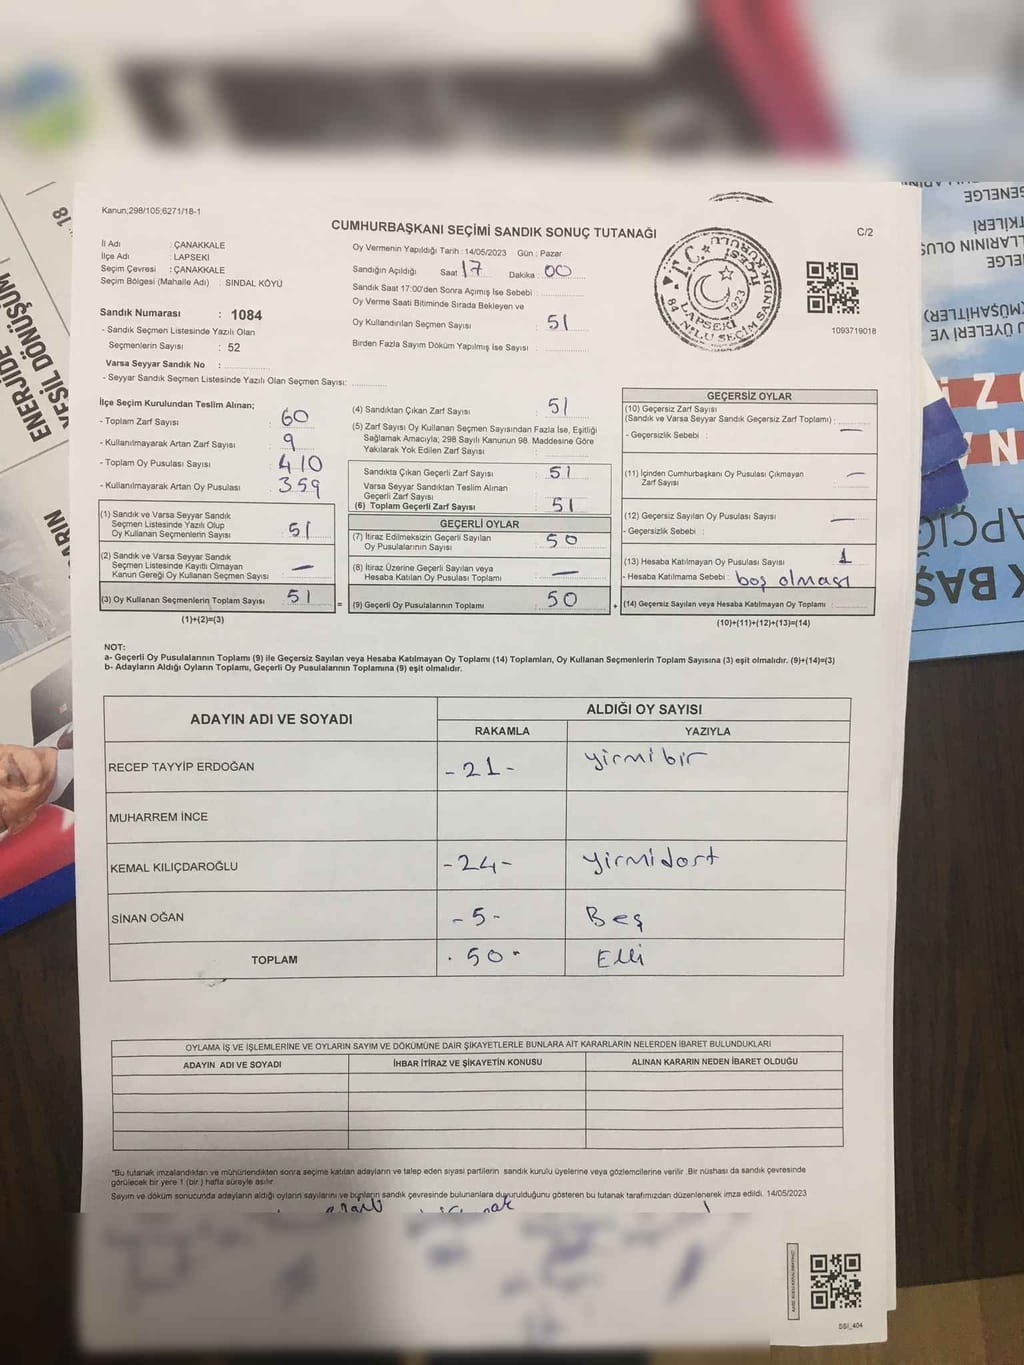 Kanun;298/105;6271/18-1
CUMHURBAŞKANI SEÇİMİ SANDIK SONUÇ TUTANAĞI
C/2
İl Adı : ÇANAKKALE
İlçe Adı : LAPSEKİ
Seçim Çevresi : ÇANAKKALE
Seçim Bölgesi (Mahalle Adı) : SINDAL KÖYÜ
Sandık Numarası : 1084
- Sandık Seçmen Listesinde Yazılı Olan
Seçmenlerin Sayısı : 52
Varsa Seyyar Sandık No :
- Seyyar Sandık Seçmen Listesinde Yazılı Olan Seçmen Sayısı:
Oy Vermenin Yapıldığı Tarih :14/05/2023 Gün : Pazar
Sandığın Açıldığı Saat 17 Dakika : 00
Sandık Saat 17:00'den Sonra Açımış İse Sebebi :
Oy Verme Saati Bitiminde Sırada Bekleyen ve
Oy Kullandırılan Seçmen Sayısı : 51
Birden Fazla Sayım Döküm Yapılmış İse Sayısı :
T.C.
LAPSEKİ
1923
84 NOLU SEÇİM SANDIK KURULU
1093719018
İlçe Seçim Kurulundan Teslim Alınan;
- Toplam Zarf Sayısı : 60
- Kullanılmayarak Artan Zarf Sayısı : 9
- Toplam Oy Pusulası Sayısı : 410
- Kullanılmayarak Artan Oy Pusulası : 359
(1) Sandık ve Varsa Seyyar Sandık
Seçmen Listesinde Yazılı Olup
Oy Kullanan Seçmenlerin Sayısı : 51
(2) Sandık ve Varsa Seyyar Sandık
Seçmen Listesinde Kayıtlı Olmayan
Kanun Gereği Oy Kullanan Seçmen Sayısı : —
(3) Oy Kullanan Seçmenlerin Toplam Sayısı : 51
(1)+(2)=(3)
(4) Sandıktan Çıkan Zarf Sayısı : 51
(5) Zarf Sayısı Oy Kullanan Seçmen Sayısından Fazla İse, Eşitliği
Sağlamak Amacıyla; 298 Sayılı Kanunun 98. Maddesine Göre
Yakılarak Yok Edilen Zarf Sayısı :
Sandıkta Çıkan Geçerli Zarf Sayısı : 51
Varsa Seyyar Sandıktan Teslim Alınan
Geçerli Zarf Sayısı :
(6) Toplam Geçerli Zarf Sayısı : 51
GEÇERLİ OYLAR
(7) İtiraz Edilmeksizin Geçerli Sayılan
Oy Pusulalarının Sayısı : 50
(8) İtiraz Üzerine Geçerli Sayılan veya
Hesaba Katılan Oy Pusulası Toplamı : —
= (9) Geçerli Oy Pusulalarının Toplamı : 50
GEÇERSİZ OYLAR
(10) Geçersiz Zarf Sayısı
(Sandık ve Varsa Seyyar Sandık Geçersiz Zarf Toplamı) : —
- Geçersizlik Sebebi :
(11) İçinden Cumhurbaşkanı Oy Pusulası Çıkmayan
Zarf Sayısı : —
(12) Geçersiz Sayılan Oy Pusulası Sayısı : —
- Geçersizlik Sebebi :
(13) Hesaba Katılmayan Oy Pusulası Sayısı : 1
- Hesaba Katılmama Sebebi : boş olması
+ (14) Geçersiz Sayılan veya Hesaba Katılmayan Oy Toplamı :
(10)+(11)+(12)+(13)=(14)
NOT:
a- Geçerli Oy Pusulalarının Toplamı (9) ile Geçersiz Sayılan veya Hesaba Katılmayan Oy Toplamı (14) Toplamları, Oy Kullanan Seçmenlerin Toplam Sayısına (3) eşit olmalıdır. (9)+(14)=(3)
b- Adayların Aldığı Oyların Toplamı, Geçerli Oy Pusulalarının Toplamına (9) eşit olmalıdır.
ADAYIN ADI VE SOYADI
ALDIĞI OY SAYISI
RAKAMLA YAZIYLA
RECEP TAYYİP ERDOĞAN -21- yirmibir
MUHARREM İNCE
KEMAL KILIÇDAROĞLU -24- yirmidört
SİNAN OĞAN -5- Beş
TOPLAM 50 Elli
OYLAMA İŞ VE İŞLEMLERİNE VE OYLARIN SAYIM VE DÖKÜMÜNE DAİR ŞİKAYETLERLE BUNLARA AİT KARARLARIN NELERDEN İBARET BULUNDUKLARI
ADAYIN ADI VE SOYADI İHBAR İTİRAZ VE ŞİKAYETİN KONUSU ALINAN KARARIN NEDEN İBARET OLDUĞU
*Bu tutanak imzalandıktan ve mühürlendikten sonra seçime katılan adayların ve talep eden siyasi partilerin sandık kurulu üyelerine veya gözlemcilerine verilir. Bir nüshası da sandık çevresinde
görülecek bir yere 1 (bir ) hafta süreyle asılır.
Sayım ve döküm sonucunda adayların aldığı oyların sayılarını ve bunların sandık çevresinde bulunanlara duyurulduğunu gösteren bu tutanak tarafımızdan düzenlenerek imza edildi. 14/05/2023
SSI_404
ENERJİDE
YEŞİL DÖNÜŞÜM
18
GENELGE